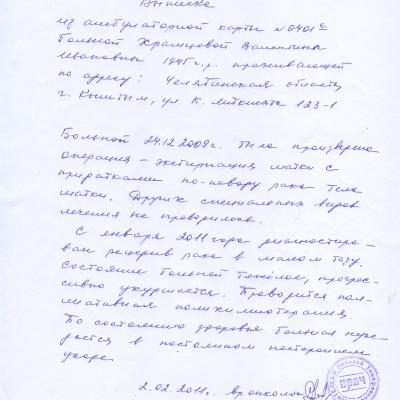 Выписка
из амбулаторной карты №0401с
больной Храмцовой Валентины
Ивановны 1945г.р. проживающей
по адресу: Челябинская область
г. Кыштым, ул. К. Либкнехта 123-1
Больной 24.12.2009г. была произведена
операция – экстирпация матки с
придатками по-поводу рака тела
матки. Других специальных видов
лечения не проводилось.
С января 2011 года диагностиро-
ван рецидив рака в малом тазу.
Состояние больной тяжёлое, прогрес-
сивно ухудшается. Проводится пал-
лиативная полихимиотерапия.
По состоянию здоровья больная нуж-
дается в постоянном постороннем
уходе
2.02.2011г. вр. онколог
врач